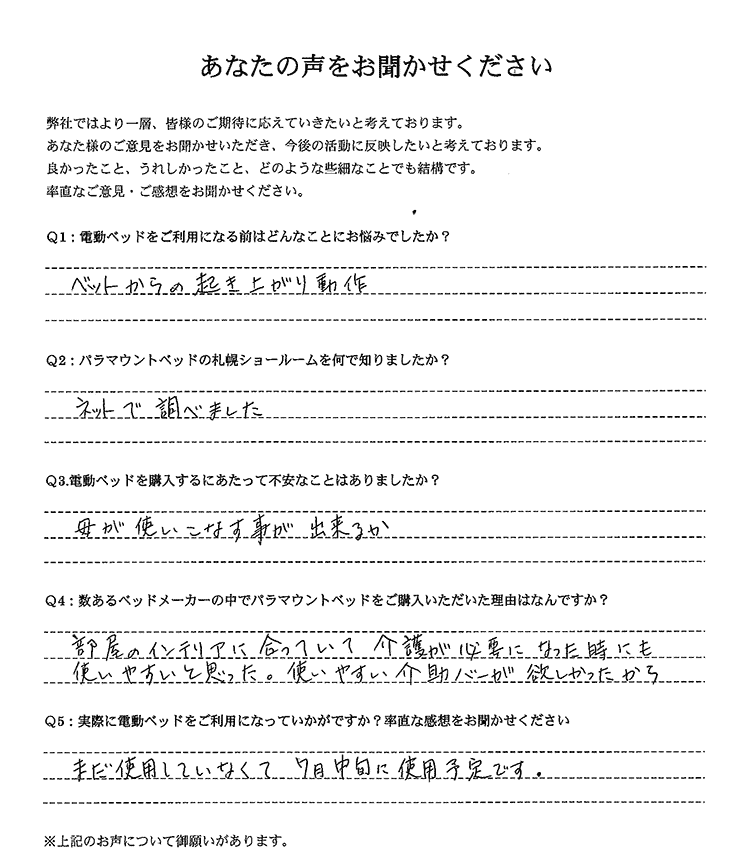 あなたの声をお聞かせください
弊社ではより一層、皆様のご期待に応えていきたいと考えております。
あなた様のご意見をお聞かせいただき、今後の活動に反映したいと考えております。
良かったこと、うれしかったこと、どのような些細なことでも結構です。
率直なご意見・ご感想をお聞かせください。
Q1：電動ベッドをご利用になる前はどんなことにお悩みでしたか？
ベットからの起き上がり動作
Q2：パラマウントベッドの札幌ショールームを何で知りましたか？
ネットで調べました
Q3.電動ベッドを購入するにあたって不安なことはありましたか？
母が使いこなす事が出来るか
Q4：数あるベッドメーカーの中でパラマウントベッドをご購入いただいた理由はなんですか？
部屋のインテリアに合っていて介護が必要になった時にも
使いやすいと思った。使いやすい介助バーが欲しかったから
Q5：実際に電動ベッドをご利用になっていかがですか？率直な感想をお聞かせください
まだ使用していなくて7月中旬に使用予定です。
※上記のお声について御願いがあります。